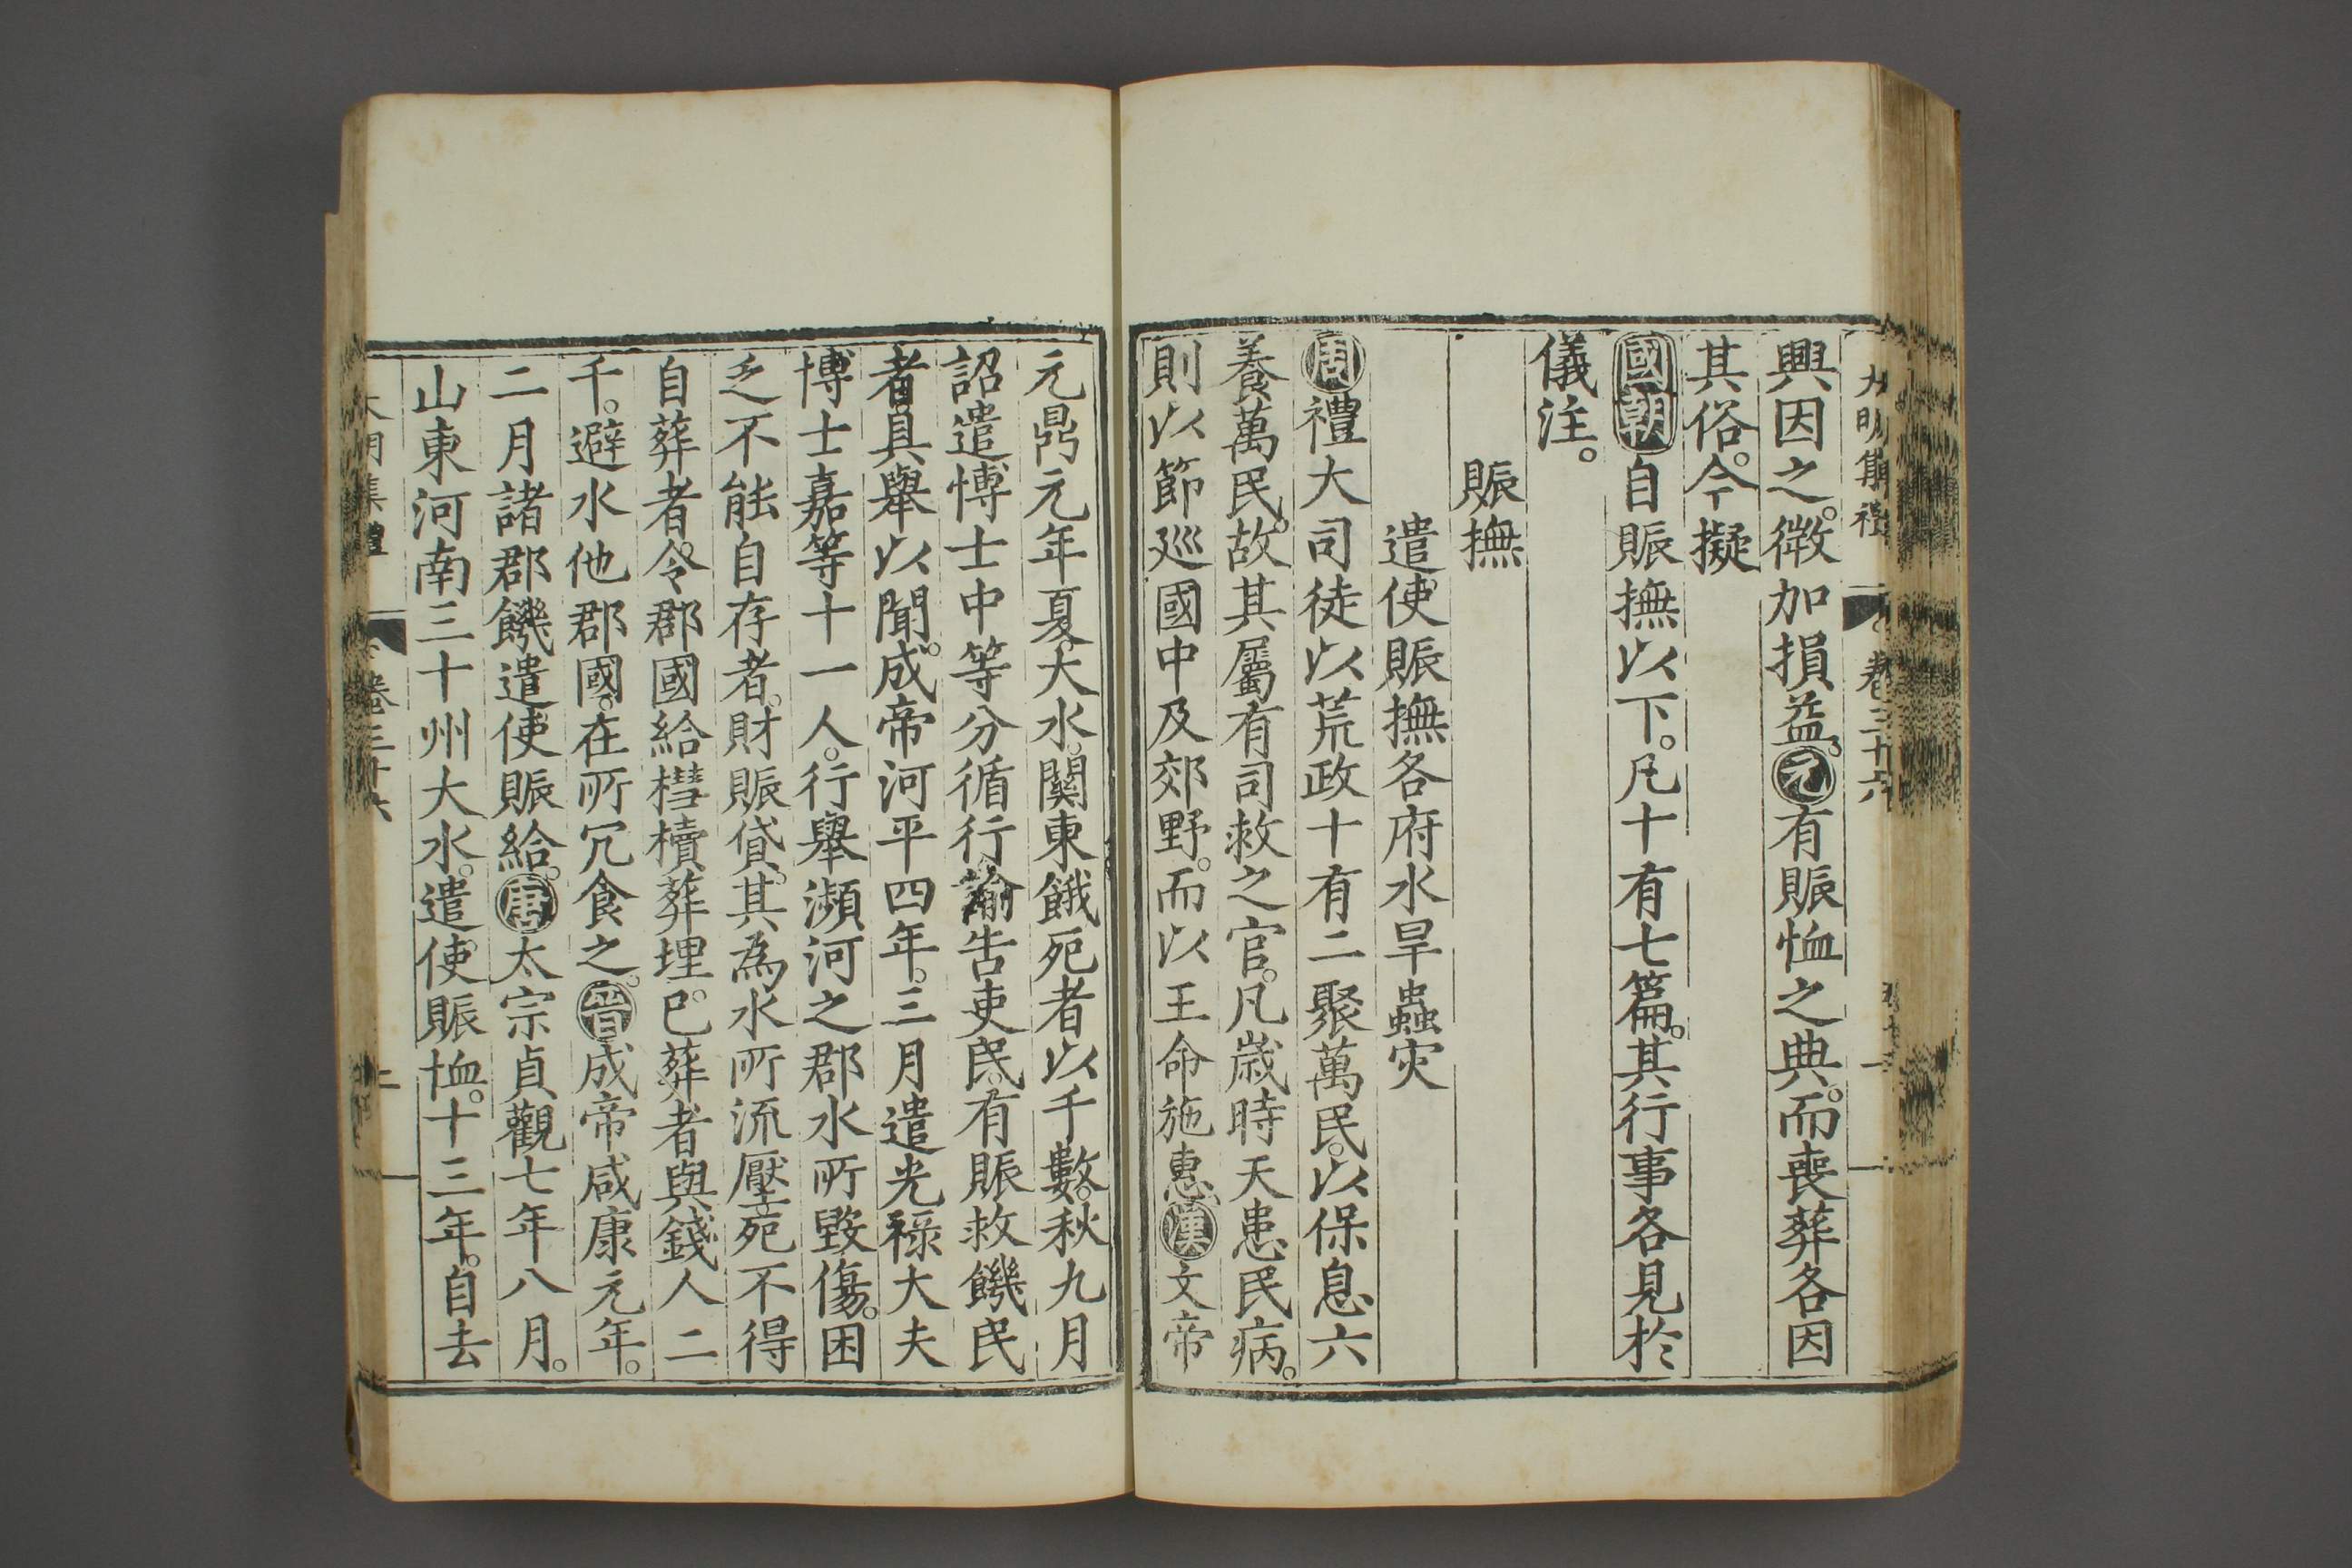 大明集禮 卷三十六
興因之。微加損益。元有賑恤之典。而喪葬各因
其俗。今擬
國朝自賑撫以下。凡十有七篇。其行事各見於
儀注。
賑撫
遣使賑撫各府水旱蟲灾
周禮大司徒以荒政十有二聚萬民。以保息六
養萬民。故其屬有司救之官。凡歲時天患民病。
則以節廵國中及郊野。而以王命施惠。漢文帝
元鼎元年夏。大水。關東餓死者以千數。秋九月
詔遣博士中等分循行。諭告吏民。有賑救饑民
者。具舉以聞。成帝河平四年。三月遣光祿大夫
博士嘉等十一人。行舉瀕河之郡水所毀傷。困
乏不能自存者。財賑貸。其為水所流壓死不得
自葬者。令郡國給槥櫝葬埋。已葬者與錢人二
千。避水他郡國。在所冗食之。晉成帝咸康元年。
二月諸郡饑遣使賑給。唐太宗貞觀七年八月。
山東河南三十州大水。遣使賑恤。十三年。自去
大明集禮 卷三十六